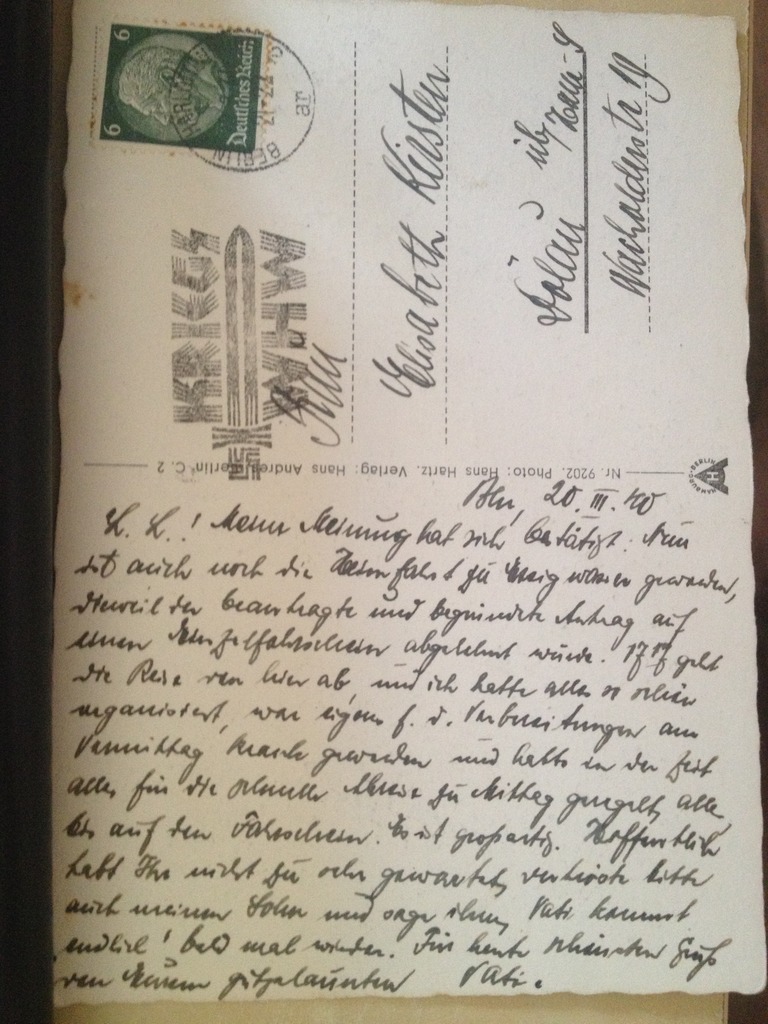 Bln, 20. III. 40
L. L.! Meine Meinung hat sich bestätigt. Nun
ist auch noch die Heimfahrt zu Essig wasser geworden,
dieweil der beantragte und begründete Antrag auf
einen Einzelfahrschein abgelehnt wurde. 17 17 geht
die Reise von hier ab, und ich hatte alles so schön
organisiert, war eigens f. d. Vorbereitungen am
Vormittag krank geworden und hatte in der Zeit
alles für die schnelle Abreise zu Mittag geregelt, alles
bis auf den Fahrschein. Es ist großartig. Hoffentlich
habt Ihr nicht zu sehr gewartet, vertröste bitte
auch meinen Sohn und sage ihm, Vati kommt
endlich! bald mal wieder. Für heute schönsten Gruß
von Deinem Vati.
Nr. 9202. Photo: Hans Hartz. Verlag: Hans Andres, Berlin C. 2
HAMBURG-BERLIN
6 Deutsches Reich 6
BERLIN
ar
KRIEGS
WHW
Frau
Elisabeth Kirsten
Dölau
Wacholderstr 19